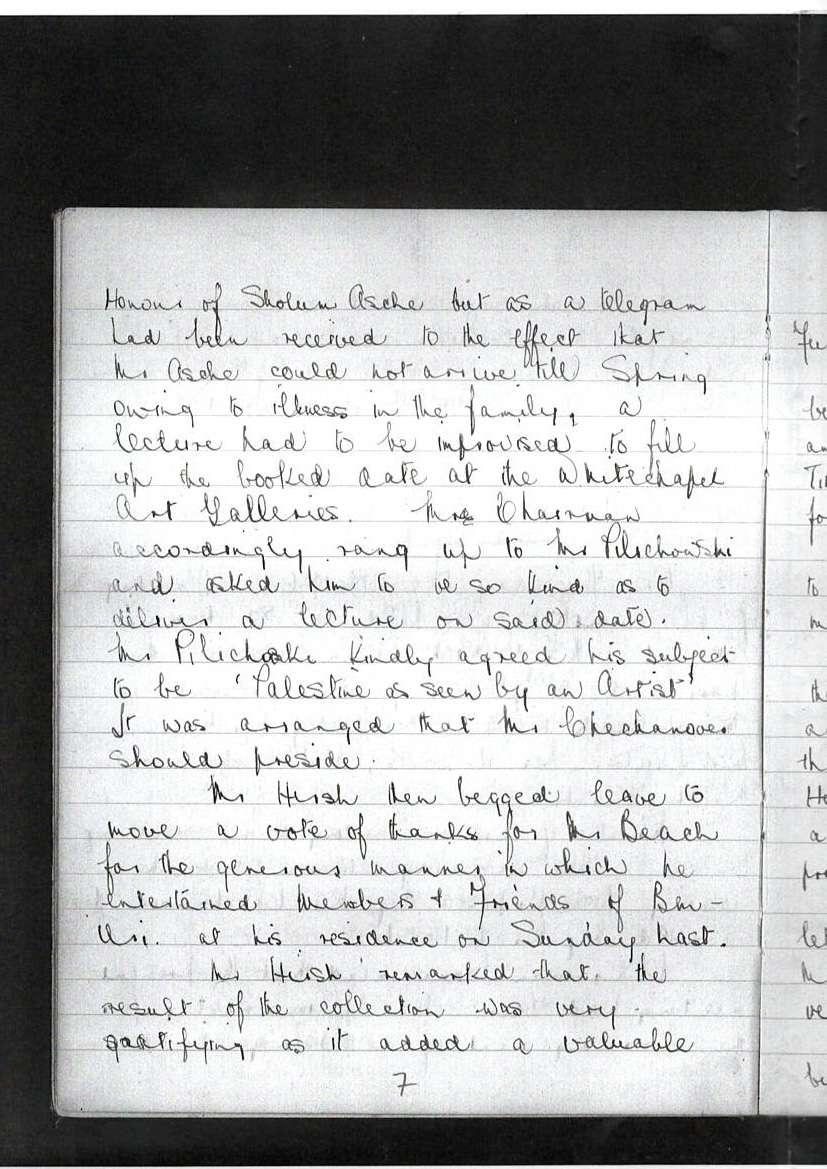 Honour of Sholum Asche but as a telegram
had been received to the effect that
Mr Asche could not arrive till Spring
owing to illness in the family, a
lecture had to be improvised to fill
up the booked date at the Whitechapel
Art Galleries. Mrs Chairman
accordingly rang up to Mr Pilichowski
and asked him to be so kind as to
deliver a lecture on said date.
Mr Pilichoski kindly agreed his subject
to be 'Palestine as seen by an Artist'
It was arranged that Mr Chechanover
should preside.
Mr Hirsh then begged leave to
move a vote of thanks for Mr Beach
for the generous manner in which he
entertained Members + Friends of Ben-
Uri. at his residence on Sunday last.
Mr Hirsh remarked that the
result of the collection was very
gratifying as it added a valuable
7